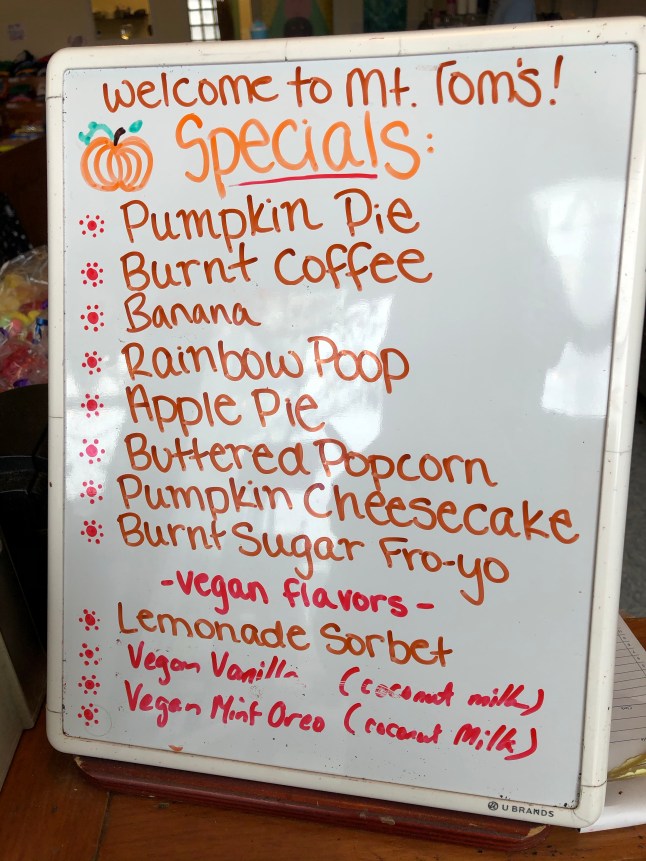 welcome to Mt. Tom's!
Specials:
Pumpkin Pie
Burnt Coffee
Banana
Rainbow Poop
Apple Pie
Buttered Popcorn
Pumpkin Cheesecake
Burnt Sugar Fro-yo
-vegan flavors-
Lemonade Sorbet
Vegan Vanilla (coconut milk)
Vegan Mint Oreo (coconut Milk)
U BRANDS